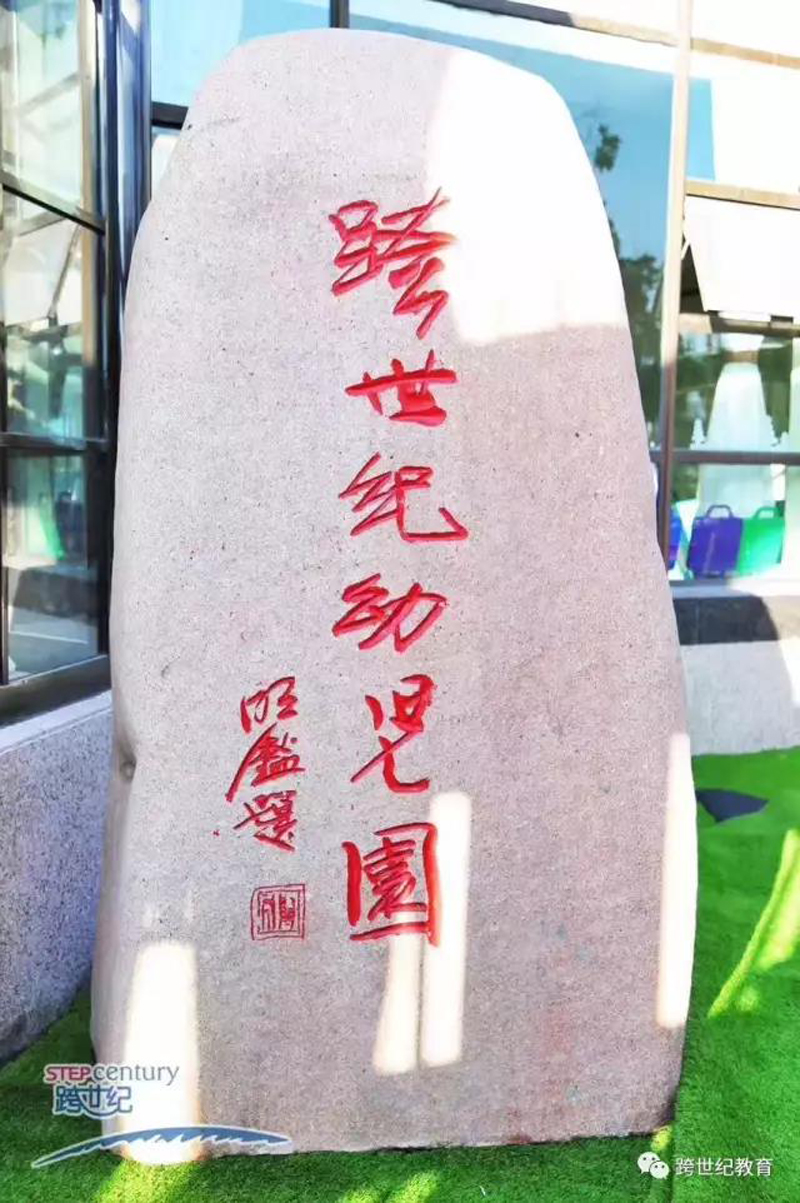 跨世纪幼兒園
明鑑題
STEPcentury
跨世纪
跨世纪教育